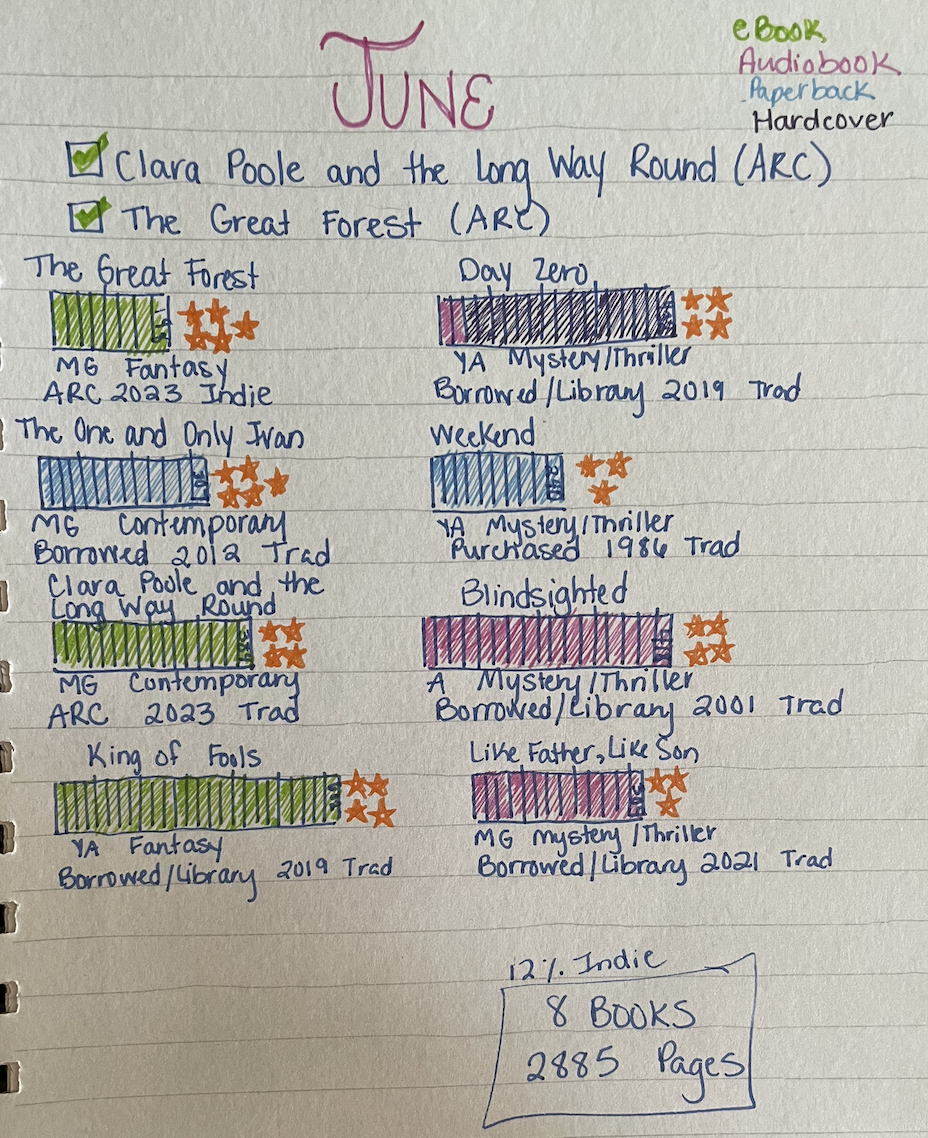 JUNE
eBook
Audiobook
Paperback
Hardcover
Clara Poole and the Long Way Round (ARC)
The Great Forest (ARC)
The Great Forest
MG Fantasy
ARC 2023 Indie
The One and Only Ivan
MG Contemporary
Borrowed 2012 Trad
Clara Poole and the
Long Way Round
MG Contemporary
ARC 2023 Trad
King of Fools
YA Fantasy
Borrowed/Library 2019 Trad
Day Zero
YA Mystery/Thriller
Borrowed/Library 2019 Trad
Weekend
YA Mystery/Thriller
Purchased 1986 Trad
Blindsighted
A Mystery/Thriller
Borrowed/Library 2001 Trad
Like Father, Like Son
MG Mystery/Thriller
Borrowed/Library 2021 Trad
12% Indie
8 BOOKS
2885 Pages